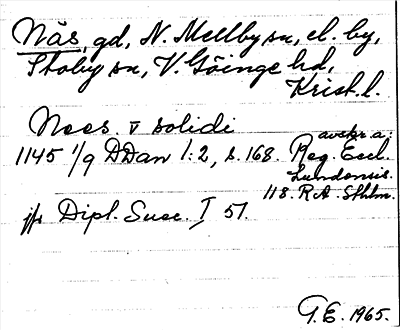 Näs, gd, N. Mellby sn, el. by,
Stoby sn, V. Göinge hd,
Krist. l.
Nees. v solidi
1145 1/9 DDan 1:2, s. 168. avskr. a:
Reg. Eccl.
Lundensis.
118. RA. Sthlm.
jfr Dipl. Suec. I 51.
T.E. 1965.